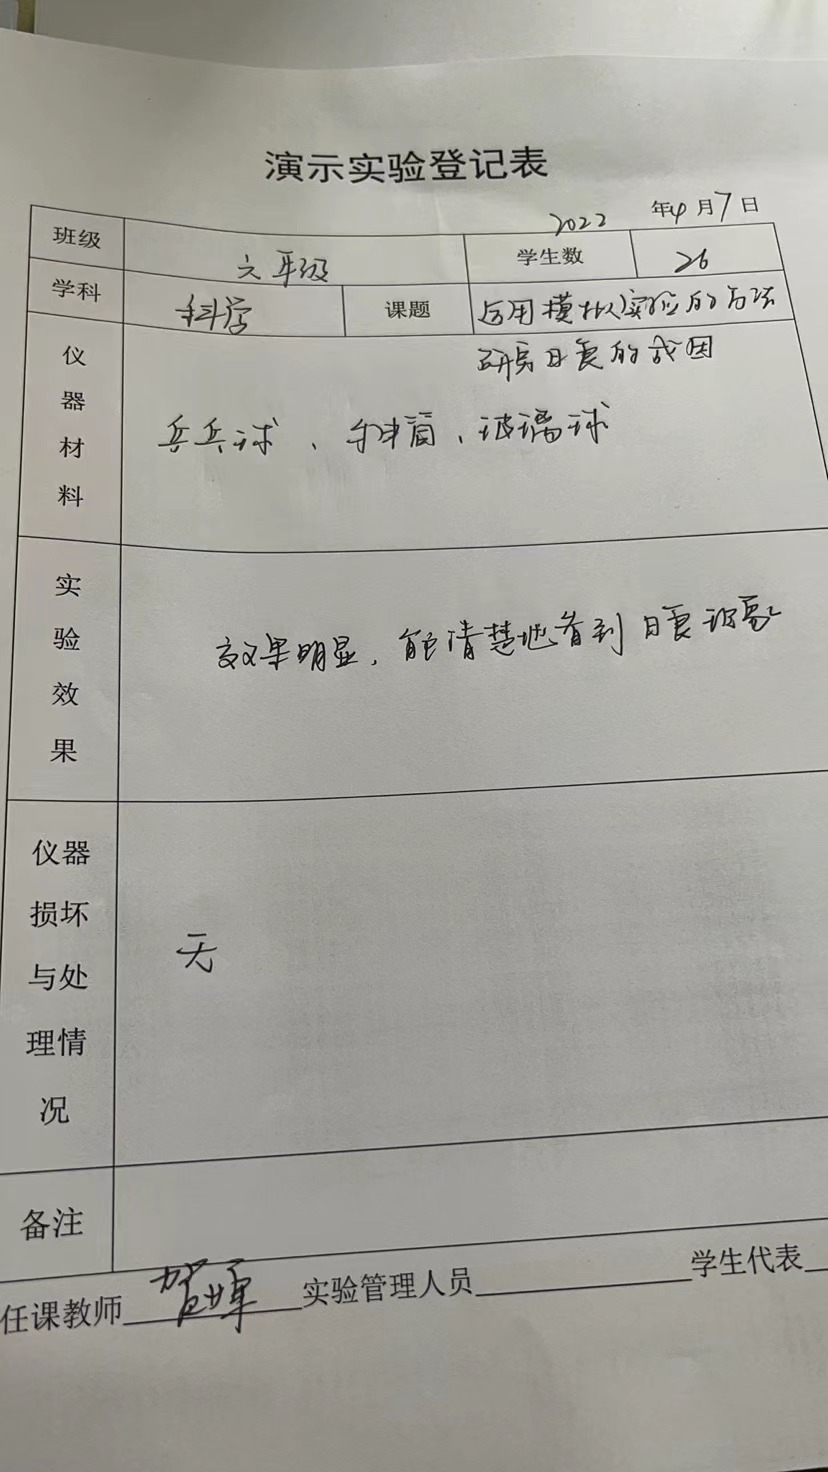 演示实验登记表
2022 年4月7日
班级 六年级 学生数 26
学科 科学 课题 运用模拟实验的方法
研究日食的成因
仪器材料
乒乓球、手电筒、玻璃球
实验效果
效果明显，能清楚地看到日食现象
仪器损坏与处理情况
无
备注
任课教师 贺 实验管理人员 学生代表